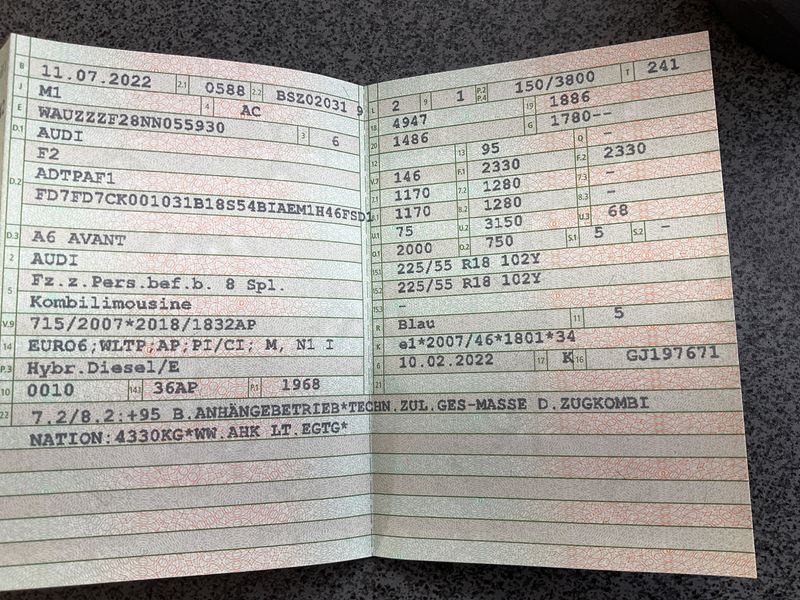 B 11.07.2022 2.1 0588 2.2 BSZ02031 9
J M1 4 AC
E WAUZZZF28NN055930 3 6
D.1 AUDI
F2
D.2 ADTPAF1
FD7FD7CK001031B18S54BIAEM1H46FSD1
D.3 A6 AVANT
2 AUDI
5 Fz.z.Pers.bef.b. 8 Spl.
Kombilimousine
V.9 715/2007*2018/1832AP
14 EURO6;WLTP;AP;PI/CI; M, N1 I
P.3 Hybr.Diesel/E
10 0010 14.1 36AP P.1 1968
L 2 9 1 P.2 P.4 150/3800 T 241
18 4947 19 1886
20 1486 G 1780--
12 13 95 Q -
V.7 146 F.1 2330 F.2 2330
7.1 1170 7.2 1280 7.3 -
8.1 1170 8.2 1280 8.3 -
U.1 75 U.2 3150 U.3 68
O.1 2000 O.2 750 S.1 5 S.2 -
15.1 225/55 R18 102Y
15.2 225/55 R18 102Y
15.3 -
R Blau 11 5
K e1*2007/46*1801*34
6 10.02.2022 17 K 16 GJ197671
21
22 7.2/8.2:+95 B.ANHÄNGEBETRIEB*TECHN.ZUL.GES-MASSE D.ZUGKOMBI
NATION:4330KG*WW.AHK LT.EGTG*